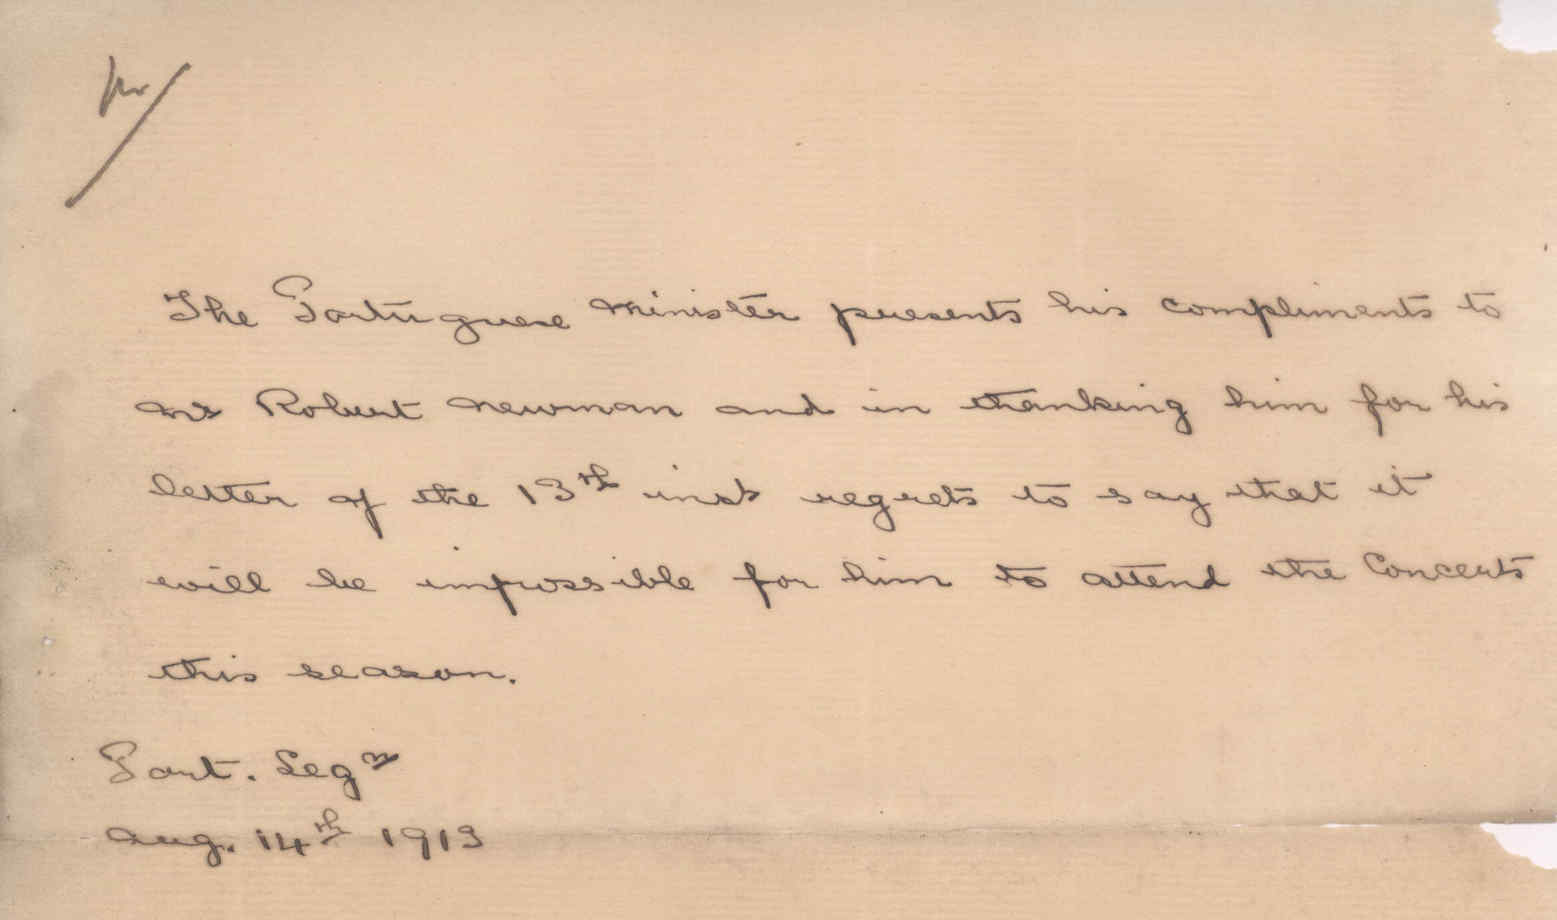 The Portuguese Minister presents his compliments to
Mr Robert Newman and in thanking him for his
letter of the 13th inst regrets to say that it
will be impossible for him to attend the Concerts
this season.
Port. Legn
Aug. 14th 1913